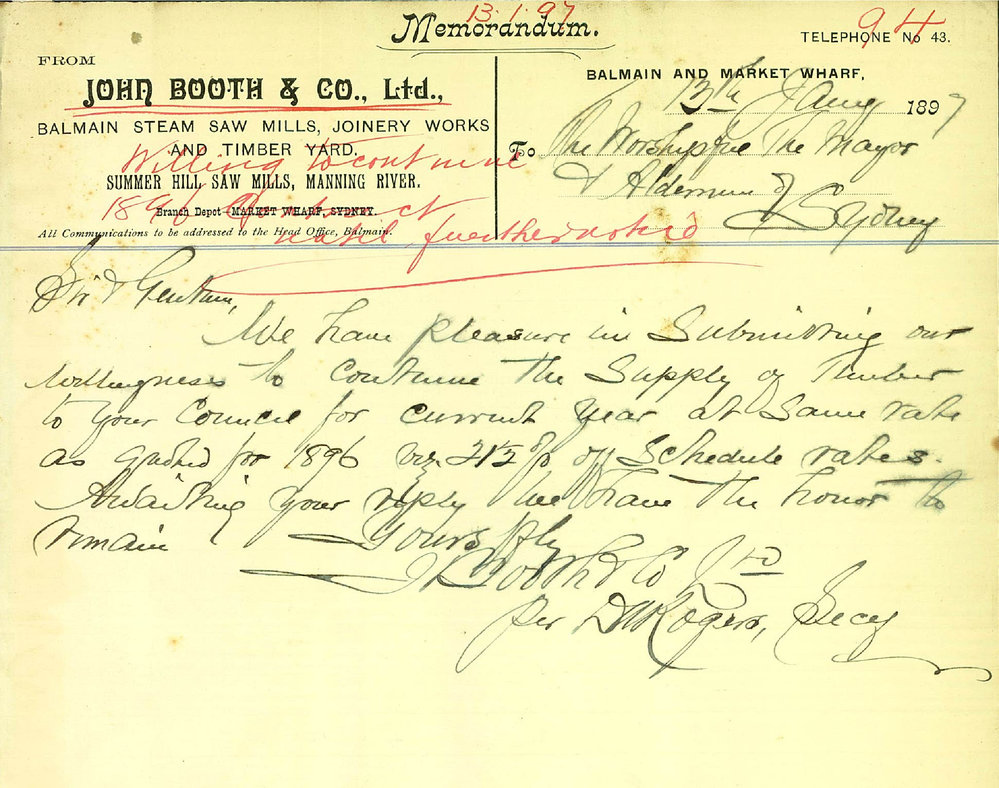 13.1.97
Memorandum.
94
TELEPHONE No 43.
FROM
JOHN BOOTH & CO., Ltd.,
BALMAIN STEAM SAW MILLS, JOINERY WORKS
AND TIMBER YARD,
SUMMER HILL SAW MILLS, MANNING RIVER.
Branch Depot MARKET WHARF, SYDNEY.
All Communications to be addressed to the Head Office, Balmain.
Willing to continue
1896 Contract
until further notice
BALMAIN AND MARKET WHARF,
13th Jany 1897
To The Worshipful The Mayor
& Aldermen of
Sydney
Sir & Gentlem,
We have pleasure in Submitting our
willingness to continue the Supply of Timber
to your Council for current year at Same rate
as quoted for 1896 viz 21½ % off Schedule rates.
Awaiting your reply we have the honor to
remain
Yours ffly
J Booth & Co Ltd
per Rogers, Secy